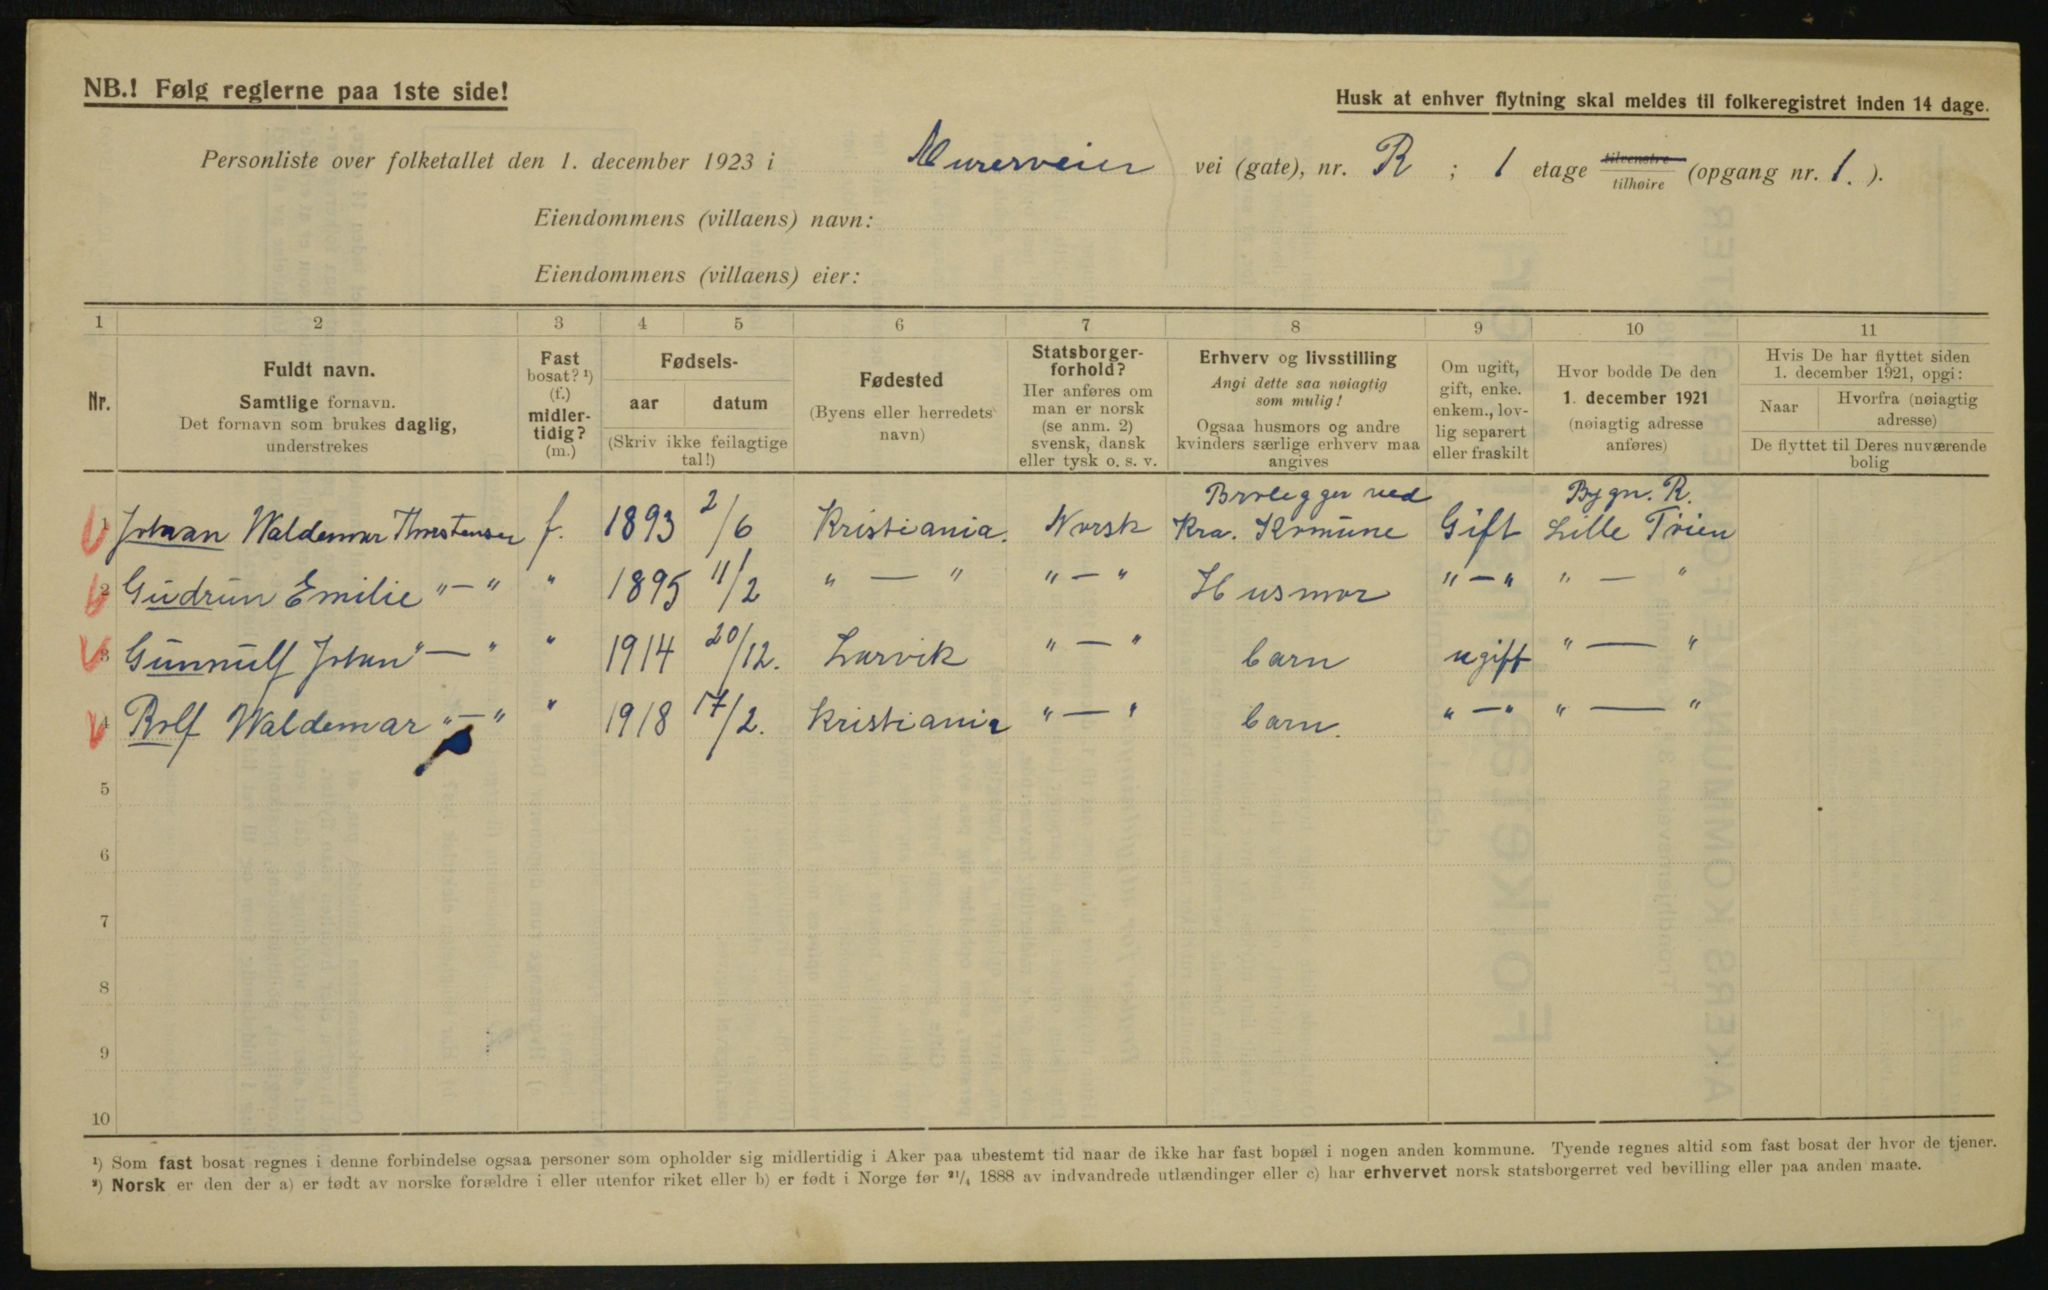 NB.! Følg reglerne paa 1ste side!
Husk at enhver flytning skal meldes til folkeregistret inden 14 dage.
Personliste over folketallet den 1. december 1923 i Murerveien vei (gate), nr. R ; 1 etage tilvenstre tilhøire (opgang nr. 1. ).
Eiendommens (villaens) navn:
Eiendommens (villaens) eier:
1 2 3 4 5 6 7 8 9 10 11
Nr.
Fuldt navn.
Samtlige fornavn.
Det fornavn som brukes daglig,
understrekes
Fast
bosat? ¹)
(f.)
midler-
tidig?
(m.)
Fødsels-
aar datum
(Skriv ikke feilagtige
tal!)
Fødested
(Byens eller herredets
navn)
Statsborger-
forhold?
Her anføres om
man er norsk
(se anm. 2)
svensk, dansk
eller tysk o. s. v.
Erhverv og livsstilling
Angi dette saa nøiagtig
som mulig!
Ogsaa husmors og andre
kvinders særlige erhverv maa
angives
Om ugift,
gift, enke.
enkem., lov-
lig separert
eller fraskilt
Hvor bodde De den
1. december 1921
(nøiagtig adresse
anføres)
Hvis De har flyttet siden
1. december 1921, opgi:
Naar
Hvorfra (nøiagtig
adresse)
De flyttet til Deres nuværende
bolig
Brolegger ved Bygn. R.
1 Johan Waldemar Thorstensen f. 1893 2/6 Kristiania. Norsk Kra. Komune Gift Lille Tøien
2 Gudrun Emilie "—" " 1895 11/2 " — " "—" Husmor "—" " — "
3 Gunnulf Johan "—" " 1914 20/12. Larvik "—" barn ugift " — "
4 Rolf Waldemar "—" " 1918 17/2. Kristiania "—" barn. "—" " — "
5
6
7
8
9
10
¹) Som fast bosat regnes i denne forbindelse ogsaa personer som opholder sig midlertidig i Aker paa ubestemt tid naar de ikke har fast bopæl i nogen anden kommune. Tyende regnes altid som fast bosat der hvor de tjener.
²) Norsk er den der a) er født av norske forældre i eller utenfor riket eller b) er født i Norge før ²¹/₄ 1888 av indvandrede utlændinger eller c) har erhvervet norsk statsborgerret ved bevilling eller paa anden maate.